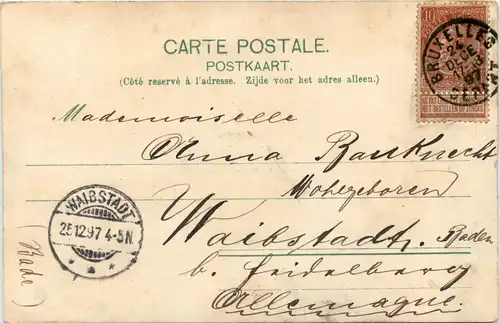 CARTE POSTALE.
POSTKAART.
(Côté reservé à l'adresse. Zijde voor het adres alleen.)
10
BRUXELLES
24
DEC
97
Mademoiselle
Anna Bauknecht
Wohlgeboren
WAIBSTADT
25.12.97 4-5N.
Waibstadt. Baden
b. Heidelberg
Allemagne.
(Bade)